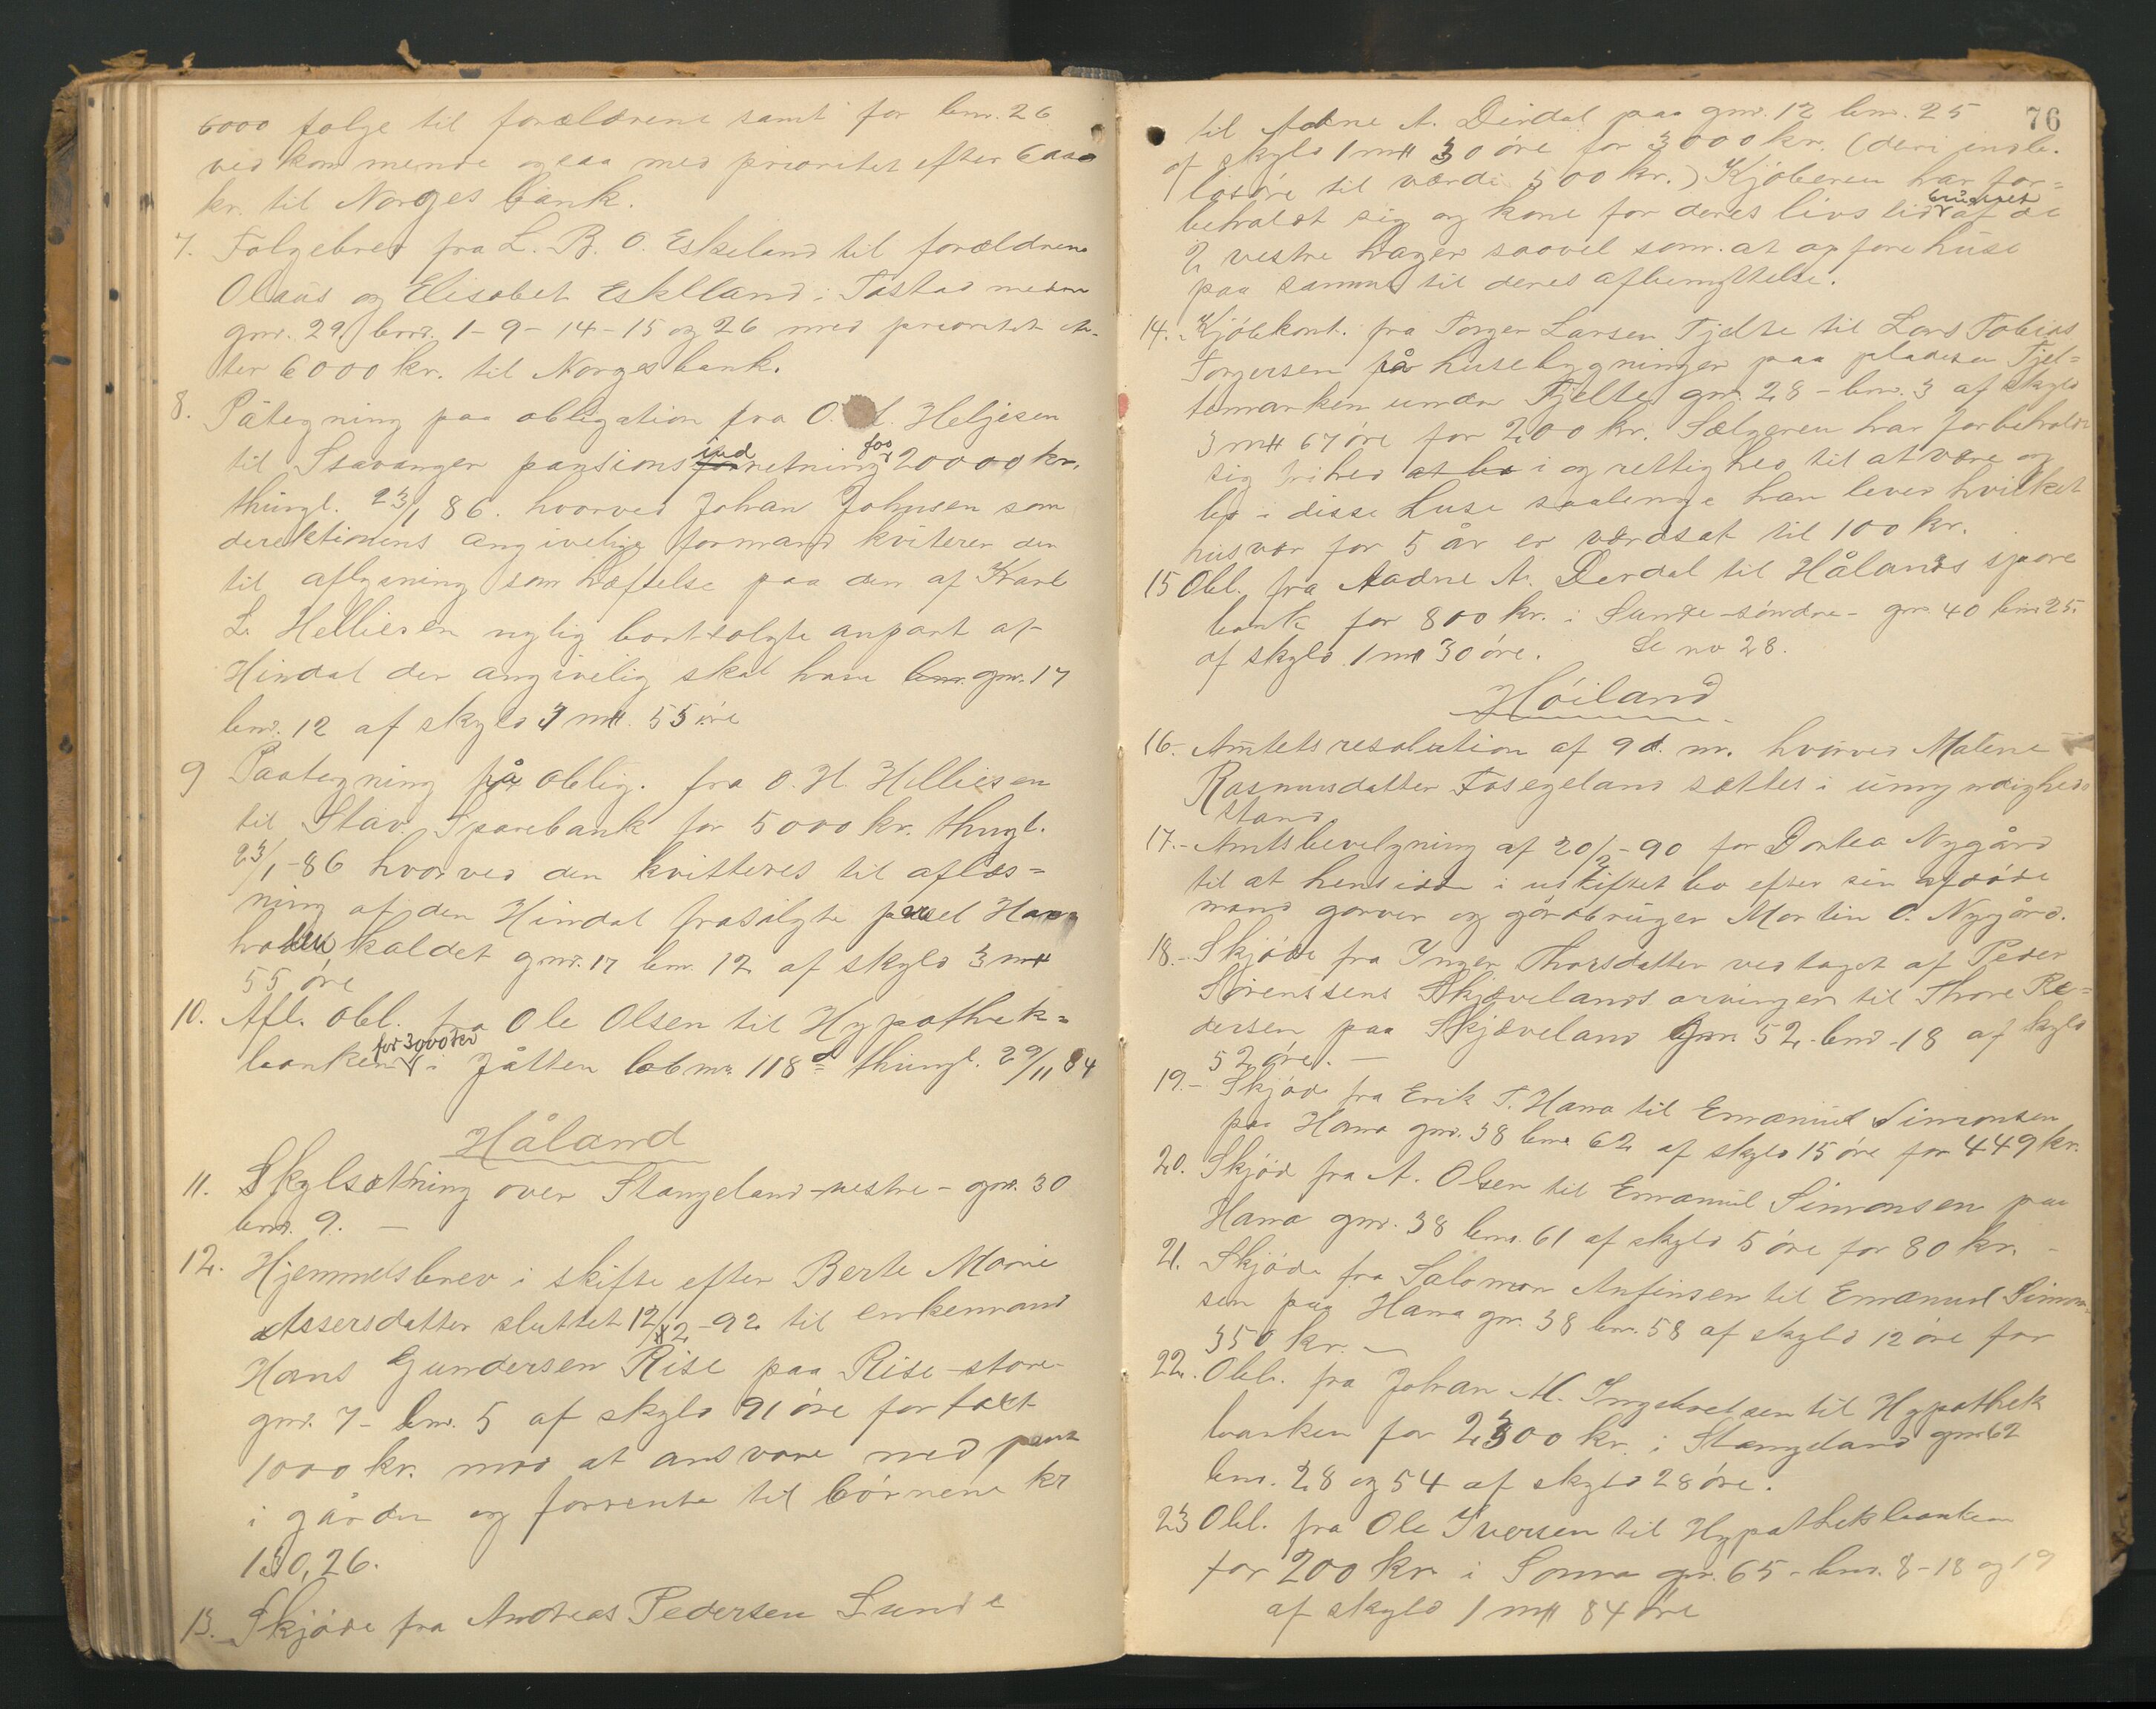 6000 følge til forældrene samt for bnr. 26
vedkommende ogsaa med prioritet efter 6000
kr. til Norges bank.
7. Følgebrev fra L. B. O. Eskeland til forældrene
Olaus og Elisabet Eskelland i Tastad nedre
gnr. 29 bnr. 1-9-14-15 og 26 med prioritet ef-
ter 6000 kr. til Norges bank.
8. Påtegning paa obligation fra O. H. Heljesen
til Stavanger pansions ind for
forretning 20000 kr.
thingl. 23/1 86. hvorved Johan Johnsen som
derektionens angivelige formand kviterer den
til aflysning som hæftelse paa den af Karl
L. Helliesen nylig bortsolgte anpart af
Hindal der angivelig skal have bnr. gnr. 17
bnr. 12 af skyld 3 mk. 55 øre
9 Paategning på oblig. fra O. H. Helliesen
til Stav. Sparebank for 5000 kr. thngl.
23/1-86 hvorved den kvitteres til aflæs=
ning af den Hindal frasolgte parsel
kaldet gnr. 17 bnr. 12 af skyld 3 mk
55 øre
10. Afl. obl. fra Ole Olsen til Hypothek=
banken for 3000 kr i Jåtten løbnr. 118d thingl. 29/11 84
Håland
11. Skylsætning over Stangeland-vestre- gnr. 30
bnr. 9. —
12. Hjemmelsbrev i skifte efter Berte Marie
Assersdatter sluttet 12/12-92 til enkemand
Hans Gundersen Rise paa Rise-store-
gnr. 7- bnr. 5 af skyld 91 øre for taxt
1000 kr. mod at ansvare med pant
i gården og forrente til børnene kr
130,26.
13. Skjøde fra Andreas Pedersen Sunde
76
til Aadne A. Dirdal paa gnr. 12 bnr. 25
af skyld 1 mk 30 øre for 3000 kr. (deri indb.
løsøre til værdi 500 kr.) Kjøberen har for=
beholdt sig og kone for deres livs tid brugen af de
2 vestre hager saavel som at opføre huse
paa samme til deres afbenyttelse.
14. Kjøbekont. fra Torger Larsen Tjelte til Lars Tobias
Torgersen på husebygninger paa pladsen Tjel=
temarken under Tjelte gnr. 28 - bnr. 3 af skyld
3 mk 67 øre for 200 kr. Sælgeren har forbeholdt
sig frihed at bo i og rettighed til at være og
bo i disse huse saalenge han lever hvilket
husvær for 5 år er værdsat til 100 kr.
15 Obl. fra Aadne A. Derdal til Hålands spare
bank for 800 kr. i Sunde-søndre- gnr. 40 bnr 25.
af skyld 1 mk 30 øre. Se no 28.
Høiland
16.- Amtets resolution af 9 d. m. hvorved Malene
Rasmusdatter Fosegeland sættes i umyndigheds
stand
17.- Amtsbevilgning af 20/2-90 for Dortea Nygård
til at hensidde i uskiftet bo efter sin afdøde
mand garver og gårdbruger Martin O. Nygård.
18.- Skjøde fra Inger Thorsdatter vedtaget af Peder
Sørenssens Skjævelands arvinger til Thore Pe=
dersen paa Skjæveland gnr. 52. bnr. 18 af skyld
52 øre. —
19.- Skjøde fra Erik T. Hana til Emanuel Simonsen
paa Hana gnr. 38 bnr 62 af skyld 15 øre for 449 kr.
20. Skjød fra A. Olsen til Emanuel Simonsen paa
Hana gnr. 38 bnr 61 af skyld 5 øre for 80 kr. -
21. Skjøde fra Salomon Anfinsen til Emanuel Simon-
sen paa Hana gnr. 38 bnr. 58 af skyld 12 øre for
350 kr. —
22. Obl. fra Johan M. Ingebretsen til Hypothek
banken for 2300 kr. i Stangeland gnr 62
bnr. 28 og 54 af skyld 28 øre.
23 Obl. fra Ole Iversen til Hypothekbanken
for 200 kr. i Soma gnr. 65 - bnr. 8-18 og 19
af skyld 1 mk 84 øre